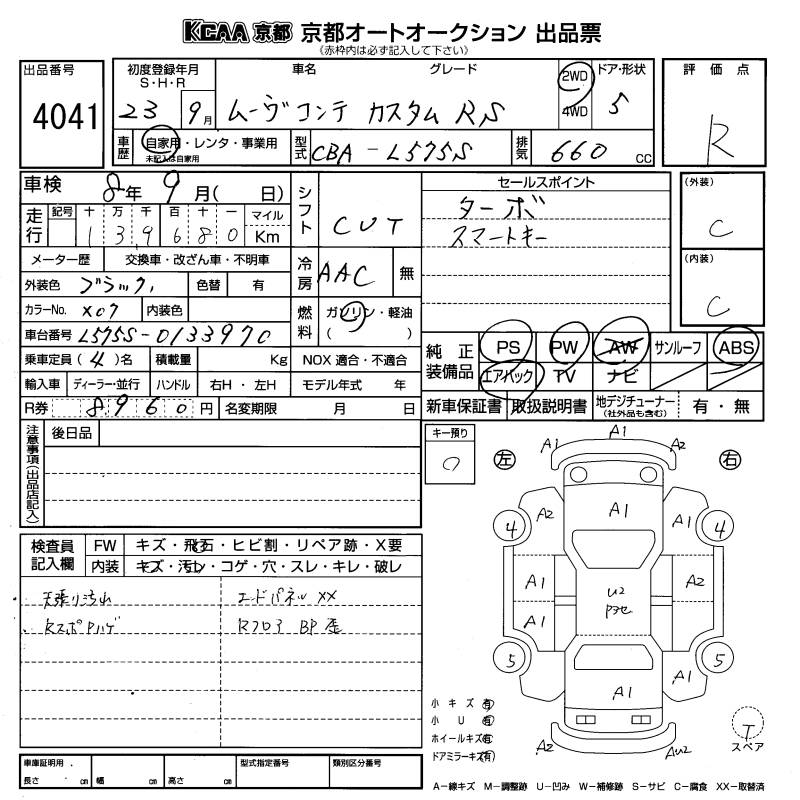 KCAA 京都 京都オートオークション 出品票
《赤枠内は必ず記入して下さい》
出品番号
4041
初度登録年月
S・H・R
23 9月
車名 グレード
ムーヴコンテ カスタム RS
2WD
4WD
ドア・形状
5
評価点
R
車歴
自家用・レンタ・事業用
未記入は自家用
型式
CBA-L575S
排気
660 cc
車検 8年 9月( 日)
走行
記号 十 万 千 百 十 一 マイル
1 3 9 6 8 0 Km
メーター歴 交換車・改ざん車・不明車
外装色 ブラック 色替 有
カラーNo. X07 内装色
車台番号 L575S-0133970
乗車定員(4)名 積載量 Kg
輸入車 ディーラー・並行 ハンドル 右H・左H
R券 8960円 名変期限 月 日
シフト
CVT
冷房
AAC 無
燃料
ガソリン・軽油
( )
NOX適合・不適合
モデル年式 年
セールスポイント
ターボ
スマートキー
(外装)
C
(内装)
C
純正装備品
PS PW AW サンルーフ ABS
エアバック TV ナビ
新車保証書 取扱説明書 地デジチューナー(社外品も含む) 有・無
注意事項(出品店記入)
後日品
キー預り
0
左
右
A1
A1 A2
A2 A1 A1
4 4
A1 U2 A2
A1
5 5
A1
A1
A2 AU2
検査員記入欄
FW キズ・飛石・ヒビ割・リペア跡・X要
内装 キズ・汚れ・コゲ・穴・スレ・キレ・破レ
天張り汚れ
エンドパネル XX
RスポPハゲ
Rフロア BP歪
小キズ(有)
小U(有)
ホイールキズ(有)
ドアミラーキズ(有)
T
スペア
車庫証明用.
長さ cm 幅 cm 高さ cm
型式指定番号
類別区分番号
A-線キズ M-調整跡 U-凹み W-補修跡 S-サビ C-腐食 XX-取替済